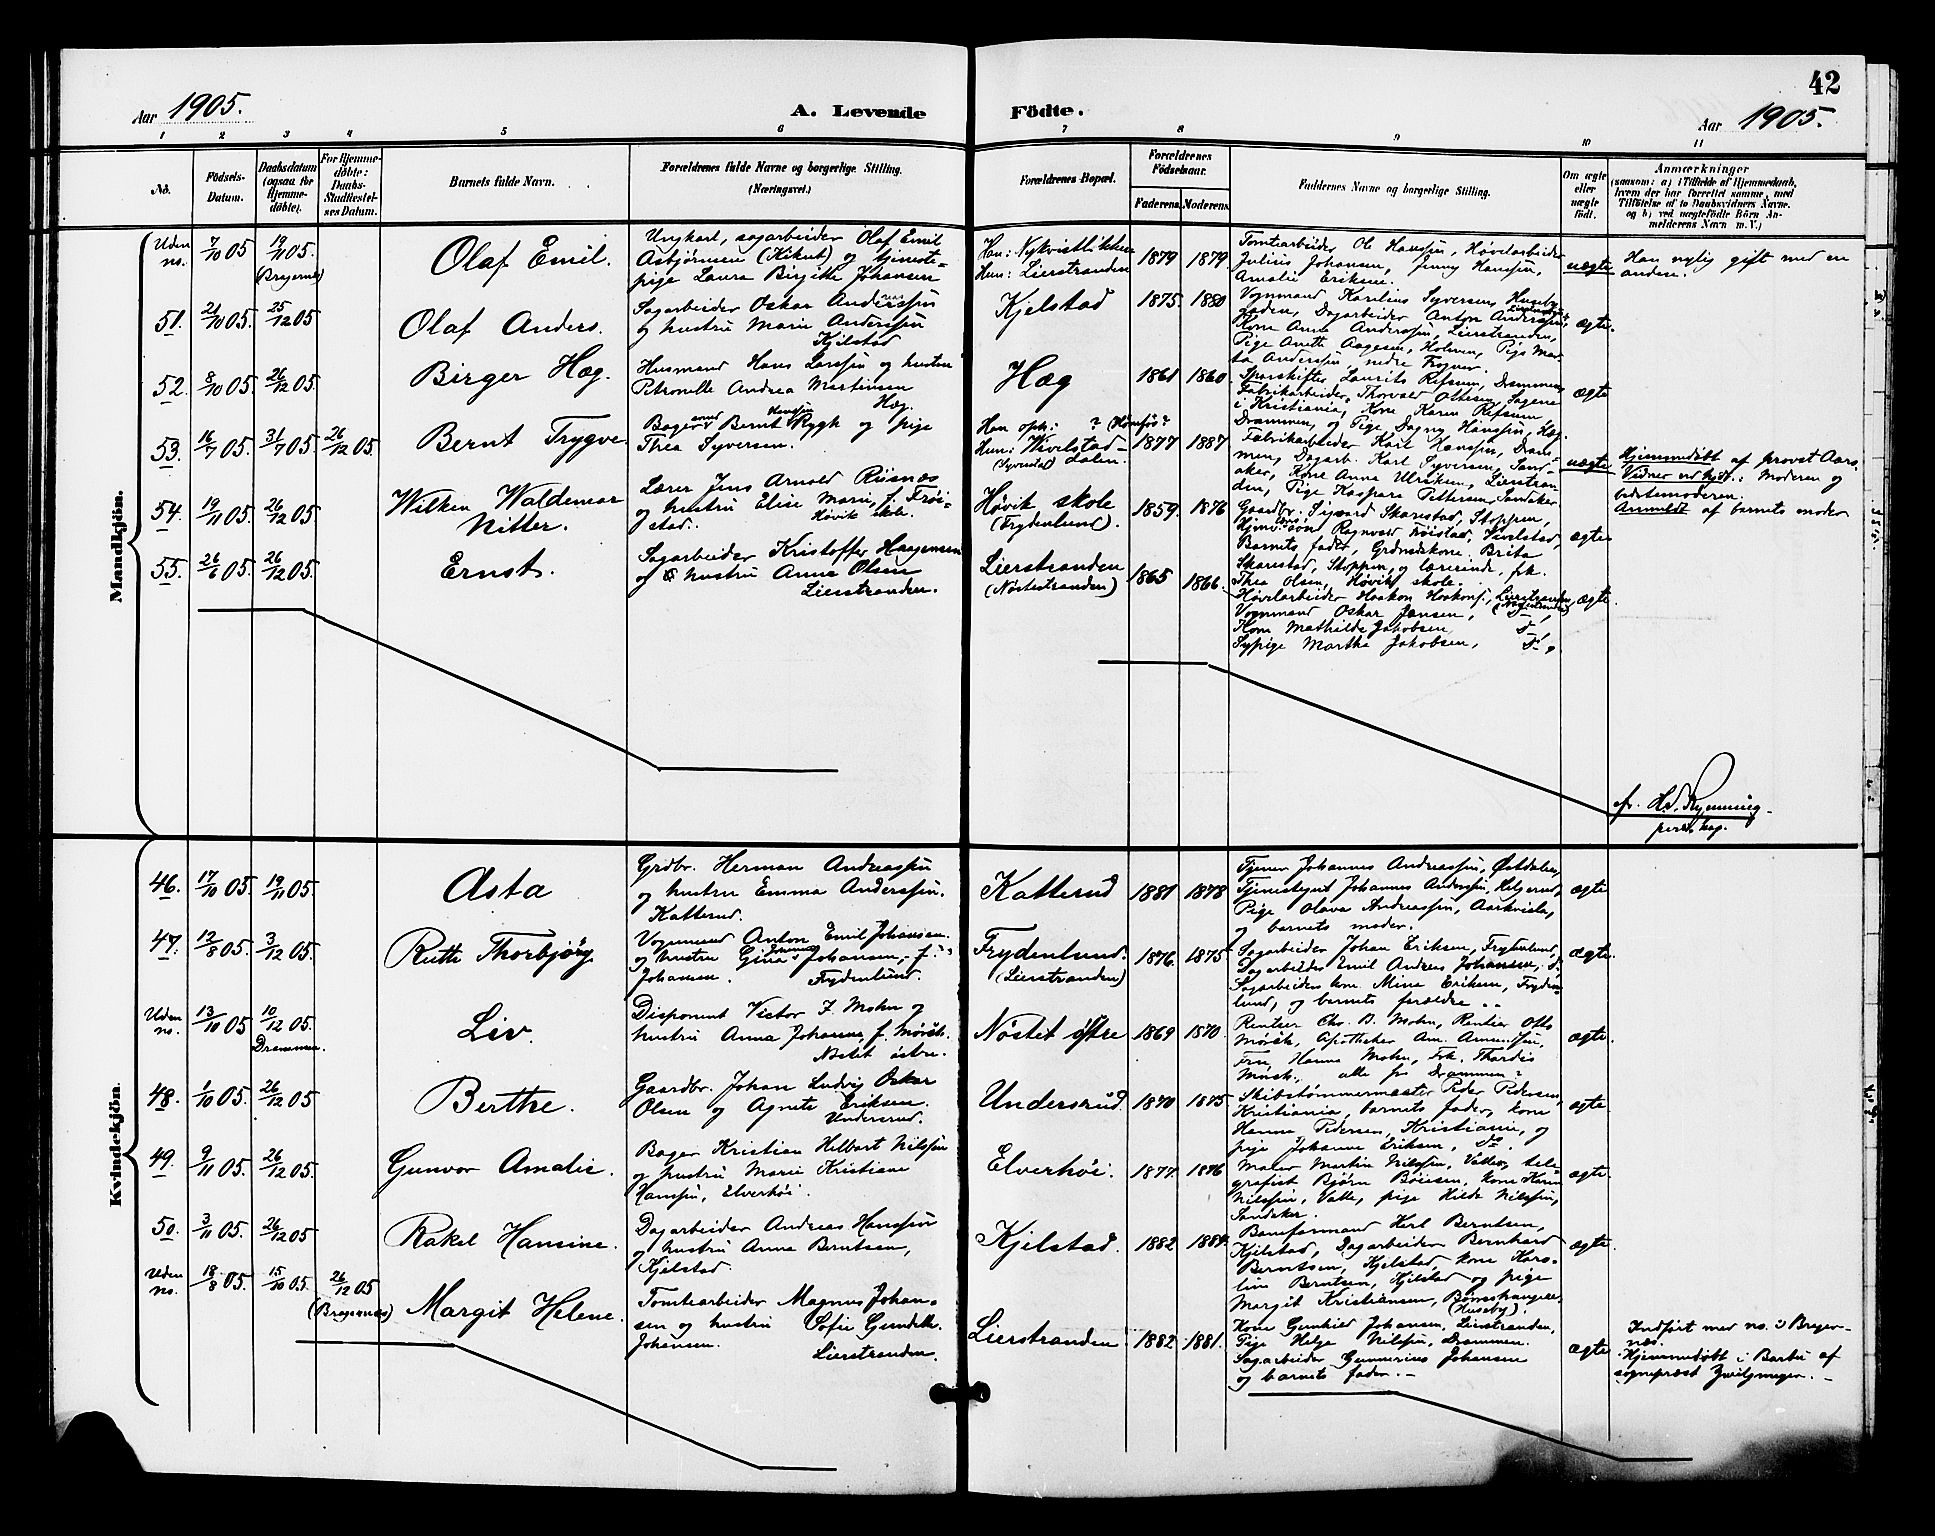 42
Aar 1905.
A. Levende Födte.
Aar 1905.
1 2 3 4 5 6 7 8 9 10 11
No.
Födsels-
Datum.
Daabsdatum
(ogsaa for
Hjemme-
døbte).
For Hjemme-
døbte:
Daabs-
Stadfæstel-
ses Datum.
Barnets fulde Navn.
Forældrenes fulde Navne og borgerlige Stilling.
(Næringsvei.)
Forældrenes Bopæl.
Forældrenes
Födselsaar.
Faderens. Moderens.
Faddernes Navne og borgerlige Stilling.
Om ægte
eller
uægte
født.
Anmærkninger
(saasom: a) i Tilfælde af Hjemmedaab,
hvem der har forrettet samme, med
Tilføielse af to Daabsvidners Navne.
og b) ved uægtefødte Börn An-
melderens Navn m. V.)
Mandkjön.
Uden
no.
7/10 05
19/11 05.
(Bragernes)
Olaf Emil.
Ungkarl, sagarbeider Olaf Emil
Asbjørnsen (Kikut) og tjeneste-
pige Laura Birgitte Johansen
Han: Nykvistløkken
Hun: Lierstranden
1879 1879
Tomtearbeider Ole Hanssen, Høvlarbeider
Julius Johansen, Jenny Hanssen,
Amalie Eriksen.
uægte
Han nylig gift med en
anden.
51.
21/10 05.
25/12 05
Olaf Anders.
Sagarbeider Oskar Anderssen
og hustru Marie Anderssen
Kjelstad
Kjelstad
1875. 1880
Vognmand Karelius Syversen, Huseby
gaden, Dagarbeider Anton Anderssen,
Kone Anna Anderssen, Lierstranden,
Pige Anette Aagesen, Holmen, Pige Mar-
ta Anderssen nedre Frogner.
ægte.
52.
8/10 05.
26/12 05.
Birger Hæg.
Husmand Hans Larssen og hustru
Petronille Andrea Martinsen
Hæg.
Hæg
1861 1860.
Sporskifter Laurits Refsum, Drammen,
Fabrikarbeider Thorvald Ottesen, Sagene
i Kristiania, Kone Karen Refsum
Drammen, og Pige Dagny Hanssen, Hæg.
ægte
53.
16/7 05.
31/7 05.
26/12 05.
Bernt Trygve.
Bagersvend Bernt Hanssen Rygh og pige
Thea Syversen.
Han oph: ? (Hønefos?
Hun: Wivelstad-
(Syverstad) dalen.
1877 1887
Fabrikarbeider Karl Hanssen, Dram-
men, Dagarb. Karl Syversen, Sand-
aker, Kone Anna Ulriksen, Lierstran
den, Pige Kaspara Pettersen, Sandaker.
uægte
Hjemmedøbt af provst Aars.
Vidner ved hjdb.: Moderen og
bedstemoderen.
Anmeldt af barnets moder
54.
19/11 05.
26/12 05.
Wilken Waldemar
Nitter.
Lærer Jens Arnold Riisnæs
og hustru Elise Marie, f. Frøi-
stad. Høvik skole.
Høvik skole
(Frydenlund).
1859. 1876
Gaardbr. Sigvard Skarstad, Stoppen,
Ragnvald Frøistad, Vivelstad,
Barnets fader, Grdmdskone Brita
Skarstad, Stoppen, og lærerinde frk.
Thea Olsen, Høvik skole.
ægte
55.
26/6 05.
26/12 05.
Ernst.
Sagarbeider Kristoffer Haagensen
og hustru Anna Olsen
Lierstranden.
Lierstranden
(Nøstestranden)
1865 1866.
Høvlarbeider Haakon Haakonsen, Lierstranden,
(Nøstestranden)
Vognmand Oskar Jansen, do,
Kone Mathilde Jakobsen, do,
Sypige Martha Jakobsen, do.
ægte.
pers. kap.
Kvindekjön.
46.
17/10 05.
19/11 05.
Asta
Grdbr. Herman Andreassen
og hustru Emma Anderssen.
Katterud.
Katterud
1881 1878
Tjener Johannes Andreassen, Østdalen,
Tjenestegut Johannes Anderssen, Helgerud,
Pige Olava Andreassen, Aarkvisla,
og barnets moder.
ægte
47.
12/8 05.
3/12 05.
Ruth Thorbjørg
Vognmand Anton Emil Johansen.
og hustru Gina Johansen, f.
Johansen. Frydenlund.
Frydenlund.
(Lierstranden)
1876. 1875
Sagarbeider Johan Eriksen, Frydenlund,
Sagarbeider Emil Andreas Johansen, do
Sagarbeiders kone Mina Eriksen, Fryden-
lund, og barnets forældre.
ægte.
Uden
no.
13/10 05
10/12 05.
Drammen.
Liv.
Disponent Victor F. Mohn og
hustru Anna Johanne, f. Mørch.
Nøstet østre.
Nøstet østre
1869 1870.
Rentier Chr. B. Mohn, Rentier Otto
Mørch, Apotheker Am. Amundsen,
Fru Hanna Mohn, Frk. Thordis
Mørch, alle fra Drammen.
ægte.
48.
1/10 05.
26/12 05
Berthe.
Gaardbr. Johan Ludvig Oskar
Olsen og Agnete Eriksen.
Undersrud.
Undersrud.
1870 1875
Skibstømmermester Peder Pedersen,
Kristiania, barnets fader, kone
Hanna Pedersen, Kristiania, og
pige Johanne Eriksen, do
ægte
49.
9/11 05.
26/12 05.
Gunvor Amalie.
Bager Kristian Helbert Nilssen
og hustru Marie Kristiane
Hanssen, Elverhøi.
Elverhöi.
1877. 1876
Maler Martin Nilssen, Valle, tele-
grafist Bjørn Bøiesen, kone Karen
Nilssen, Valle, pige Hilda Nilssen,
Sandaker.
ægte.
50.
3/11 05.
26/12 05
Rakel Hansine.
Dagarbeider Andreas Hanssen
og hustru Anna Berntsen,
Kjelstad.
Kjelstad.
1882 1884.
Baneformand Karl Berntsen,
Kjelstad, Dagarbeider Bernhard
Berntsen, Kjelstad, kone Karo-
line Berntsen, Kjelstad og pige
Margit Kristiansen,
(Huseby).
ægte.
Uden
no.
18/8 05.
15/10 05.
26/12 05
(Bragernes)
Margit Helene.
Tomtearbeider Magnus Johan-
sen og hustru Sofie Gundell.
Johansen. Lierstranden.
Lierstranden
1882 1881.
Kone Gunhild Johansen, Lierstranden,
Pige Helga Nilssen, Drammen.
Sagarbeider Gunnerius Johansen
og barnets fader.
ægte
Indført med no. i Brager-
næs.
Hjemmedøbt i Barbu af
sogneprest Zwilgmeyer.